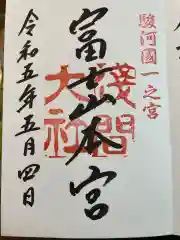 駿河國一之宮
富士山本宮
淺間
大社
令和五年五月四日